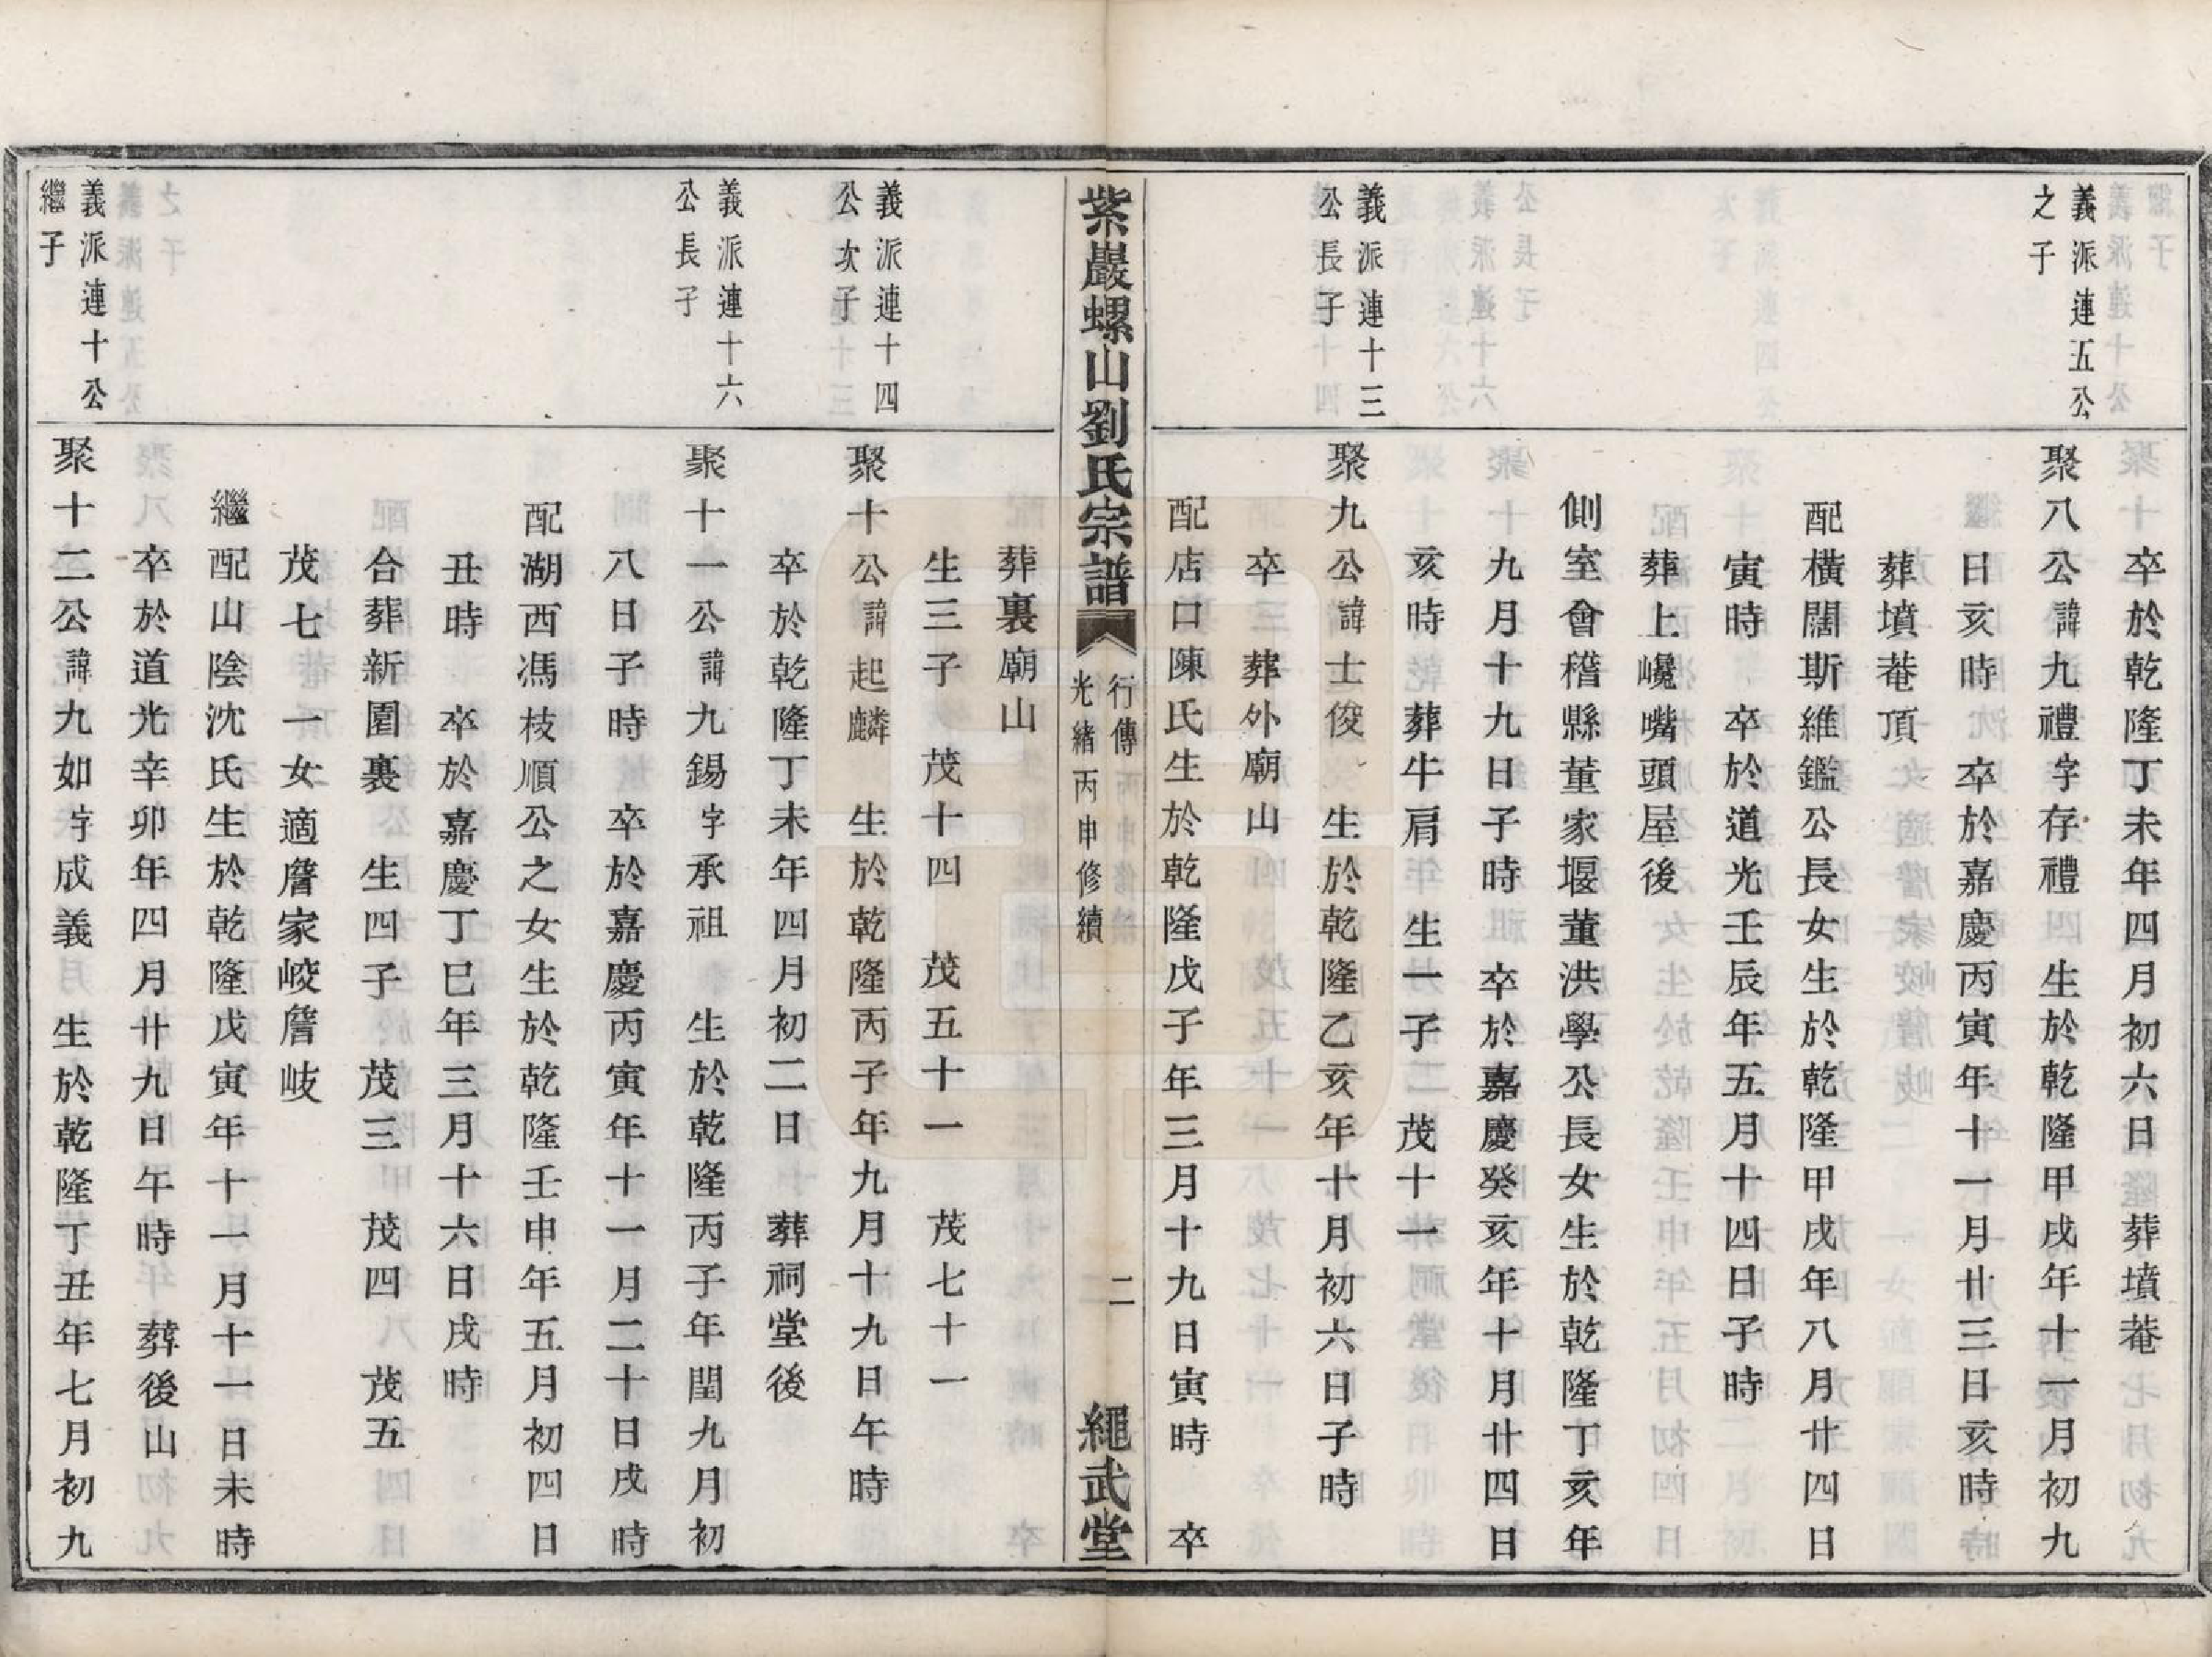 卒於乾隆丁未年四月初六日　葬墳菴
義派連五公
之子
聚八公諱九禮字存禮　生於乾隆甲戌年十一月初九
日亥時　卒於嘉慶丙寅年十一月廿三日亥時
葬墳菴頂
配橫闊斯維鑑公長女生於乾隆甲戌年八月廿四日
寅時　卒於道光壬辰年五月十四日子時
葬上巉嘴頭屋後
側室會稽縣董家堰董洪學公長女生於乾隆丁亥年
九月十九日子時　卒於嘉慶癸亥年十月廿四日
亥時　葬牛肩　生一子　茂十一
義派連十三
公長子
聚九公諱士俊　生於乾隆乙亥年十月初六日子時
卒　葬外廟山
配店口陳氏生於乾隆戊子年三月十九日寅時　卒
紫巖螺山劉氏宗譜
行傳
光緒丙申修續
二
繩武堂
葬裏廟山
生三子　茂十四　茂五十一　茂七十一
義派連十四
公次子
聚十公諱起麟　生於乾隆丙子年九月十九日午時
卒於乾隆丁未年四月初二日　葬祠堂後
義派連十六
公長子
聚十一公諱九錫字承祖　生於乾隆丙子年閏九月初
八日子時　卒於嘉慶丙寅年十一月二十日戌時
配湖西馮枝順公之女生於乾隆壬申年五月初四日
丑時　卒於嘉慶丁巳年三月十六日戌時
合葬新園裏　生四子　茂三　茂四　茂五
茂七　一女適詹家崚詹岐
繼配山陰沈氏生於乾隆戊寅年十一月十一日未時
卒於道光辛卯年四月廿九日午時　葬後山
義派連十公
繼子
聚十二公諱九如字成義　生於乾隆丁丑年七月初九